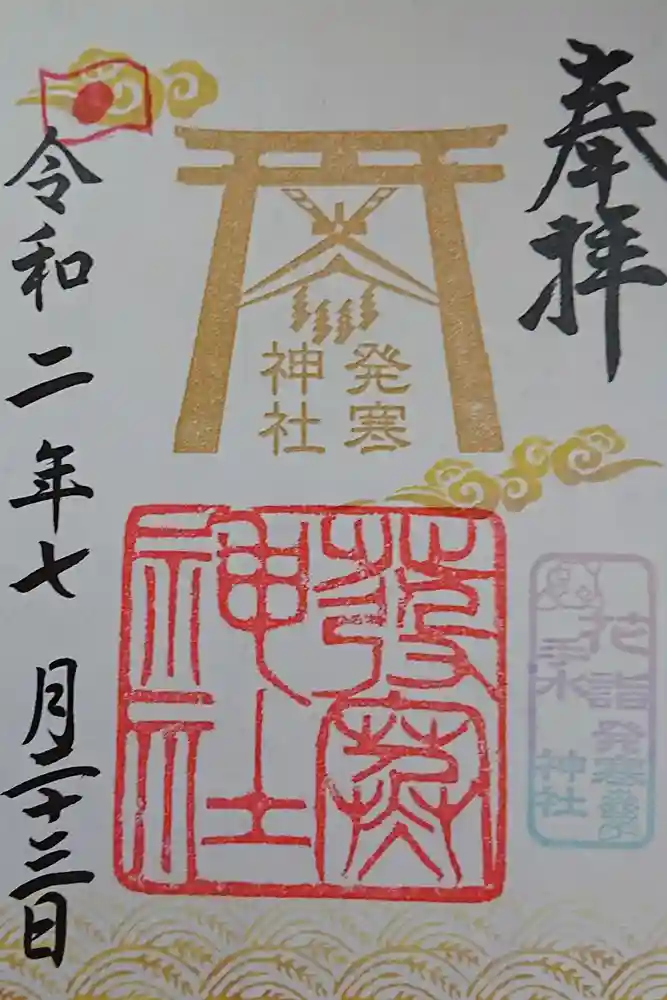 奉拝
発寒
神社
發寒
神社
花詣
手水
発寒
神社
令和二年七月二十三日